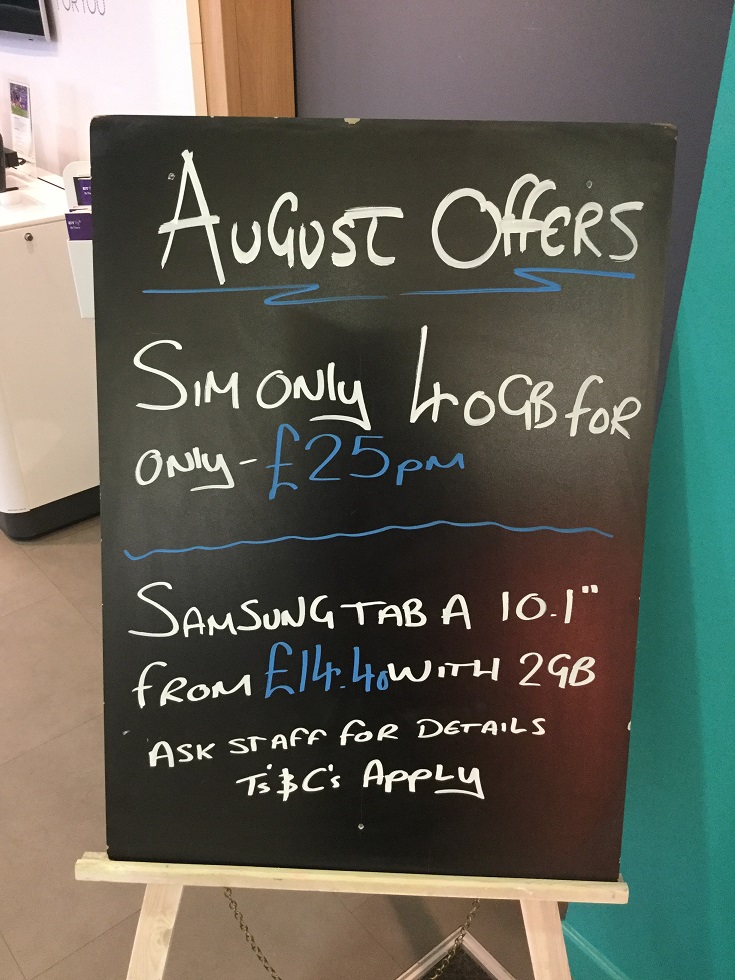 FOR YOU
AUGUST OFFERS
SIM ONLY 40GB FOR
ONLY - £25pm
SAMSUNG TAB A 10.1"
FROM £14.40 WITH 2GB
ASK STAFF FOR DETAILS
T's & C's APPLY